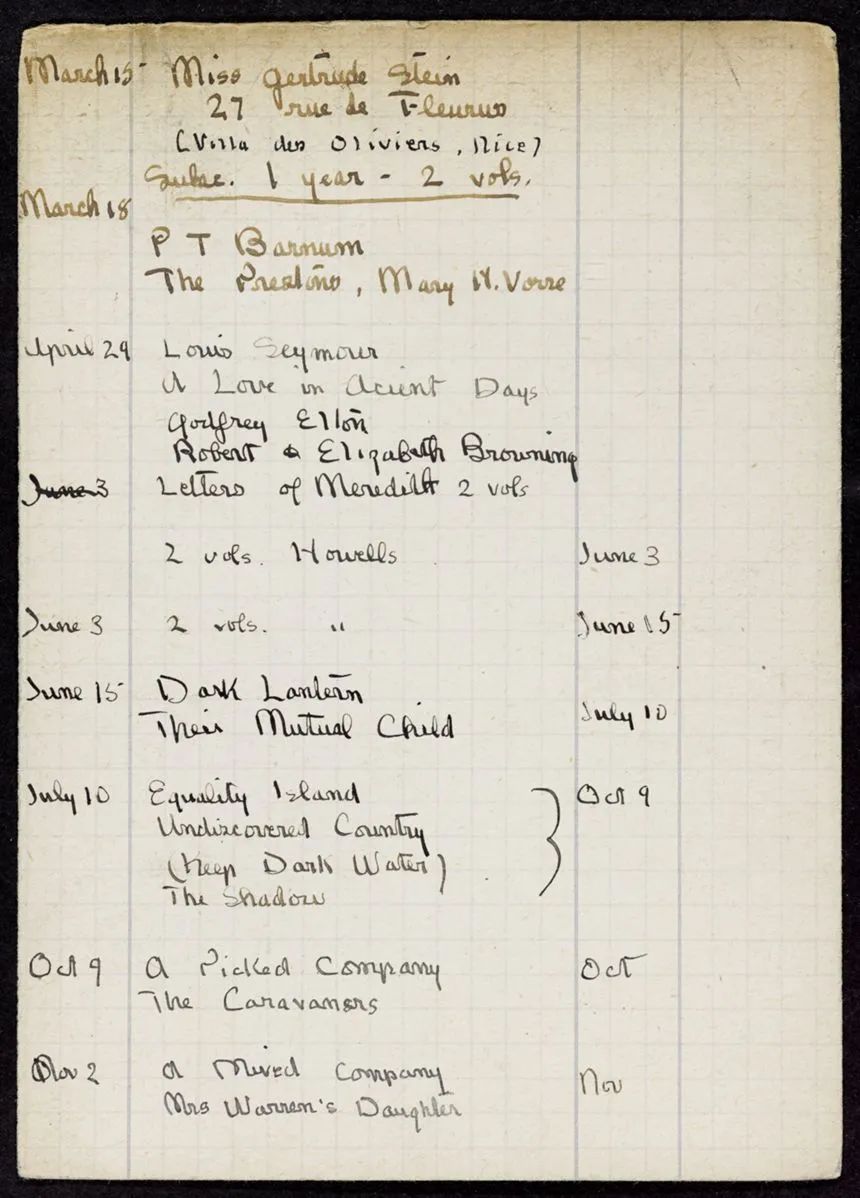 March 15 Miss Gertrude Stein
27 rue de Fleurus
(Villa des Oliviers, Nice)
Subsc. 1 year - 2 vols.
March 18
P T Barnum
The Prestons, Mary H. Vorse
April 29 Louis Seymour
A Love in Acient Days
Godfrey Elton
Robert & Elizabeth Browning
June 3 Letters of Meredith 2 vols
2 vols. Howells June 3
June 3 2 vols. " June 15
June 15 Dark Lantern
Their Mutual Child July 10
July 10 Equality Island Oct 9
Undiscovered Country
(Keep Dark Water)
The Shadow
Oct 9 A Picked Company Oct
The Caravaners
Nov 2 A Mixed Company
Mrs Warren's Daughter Nov